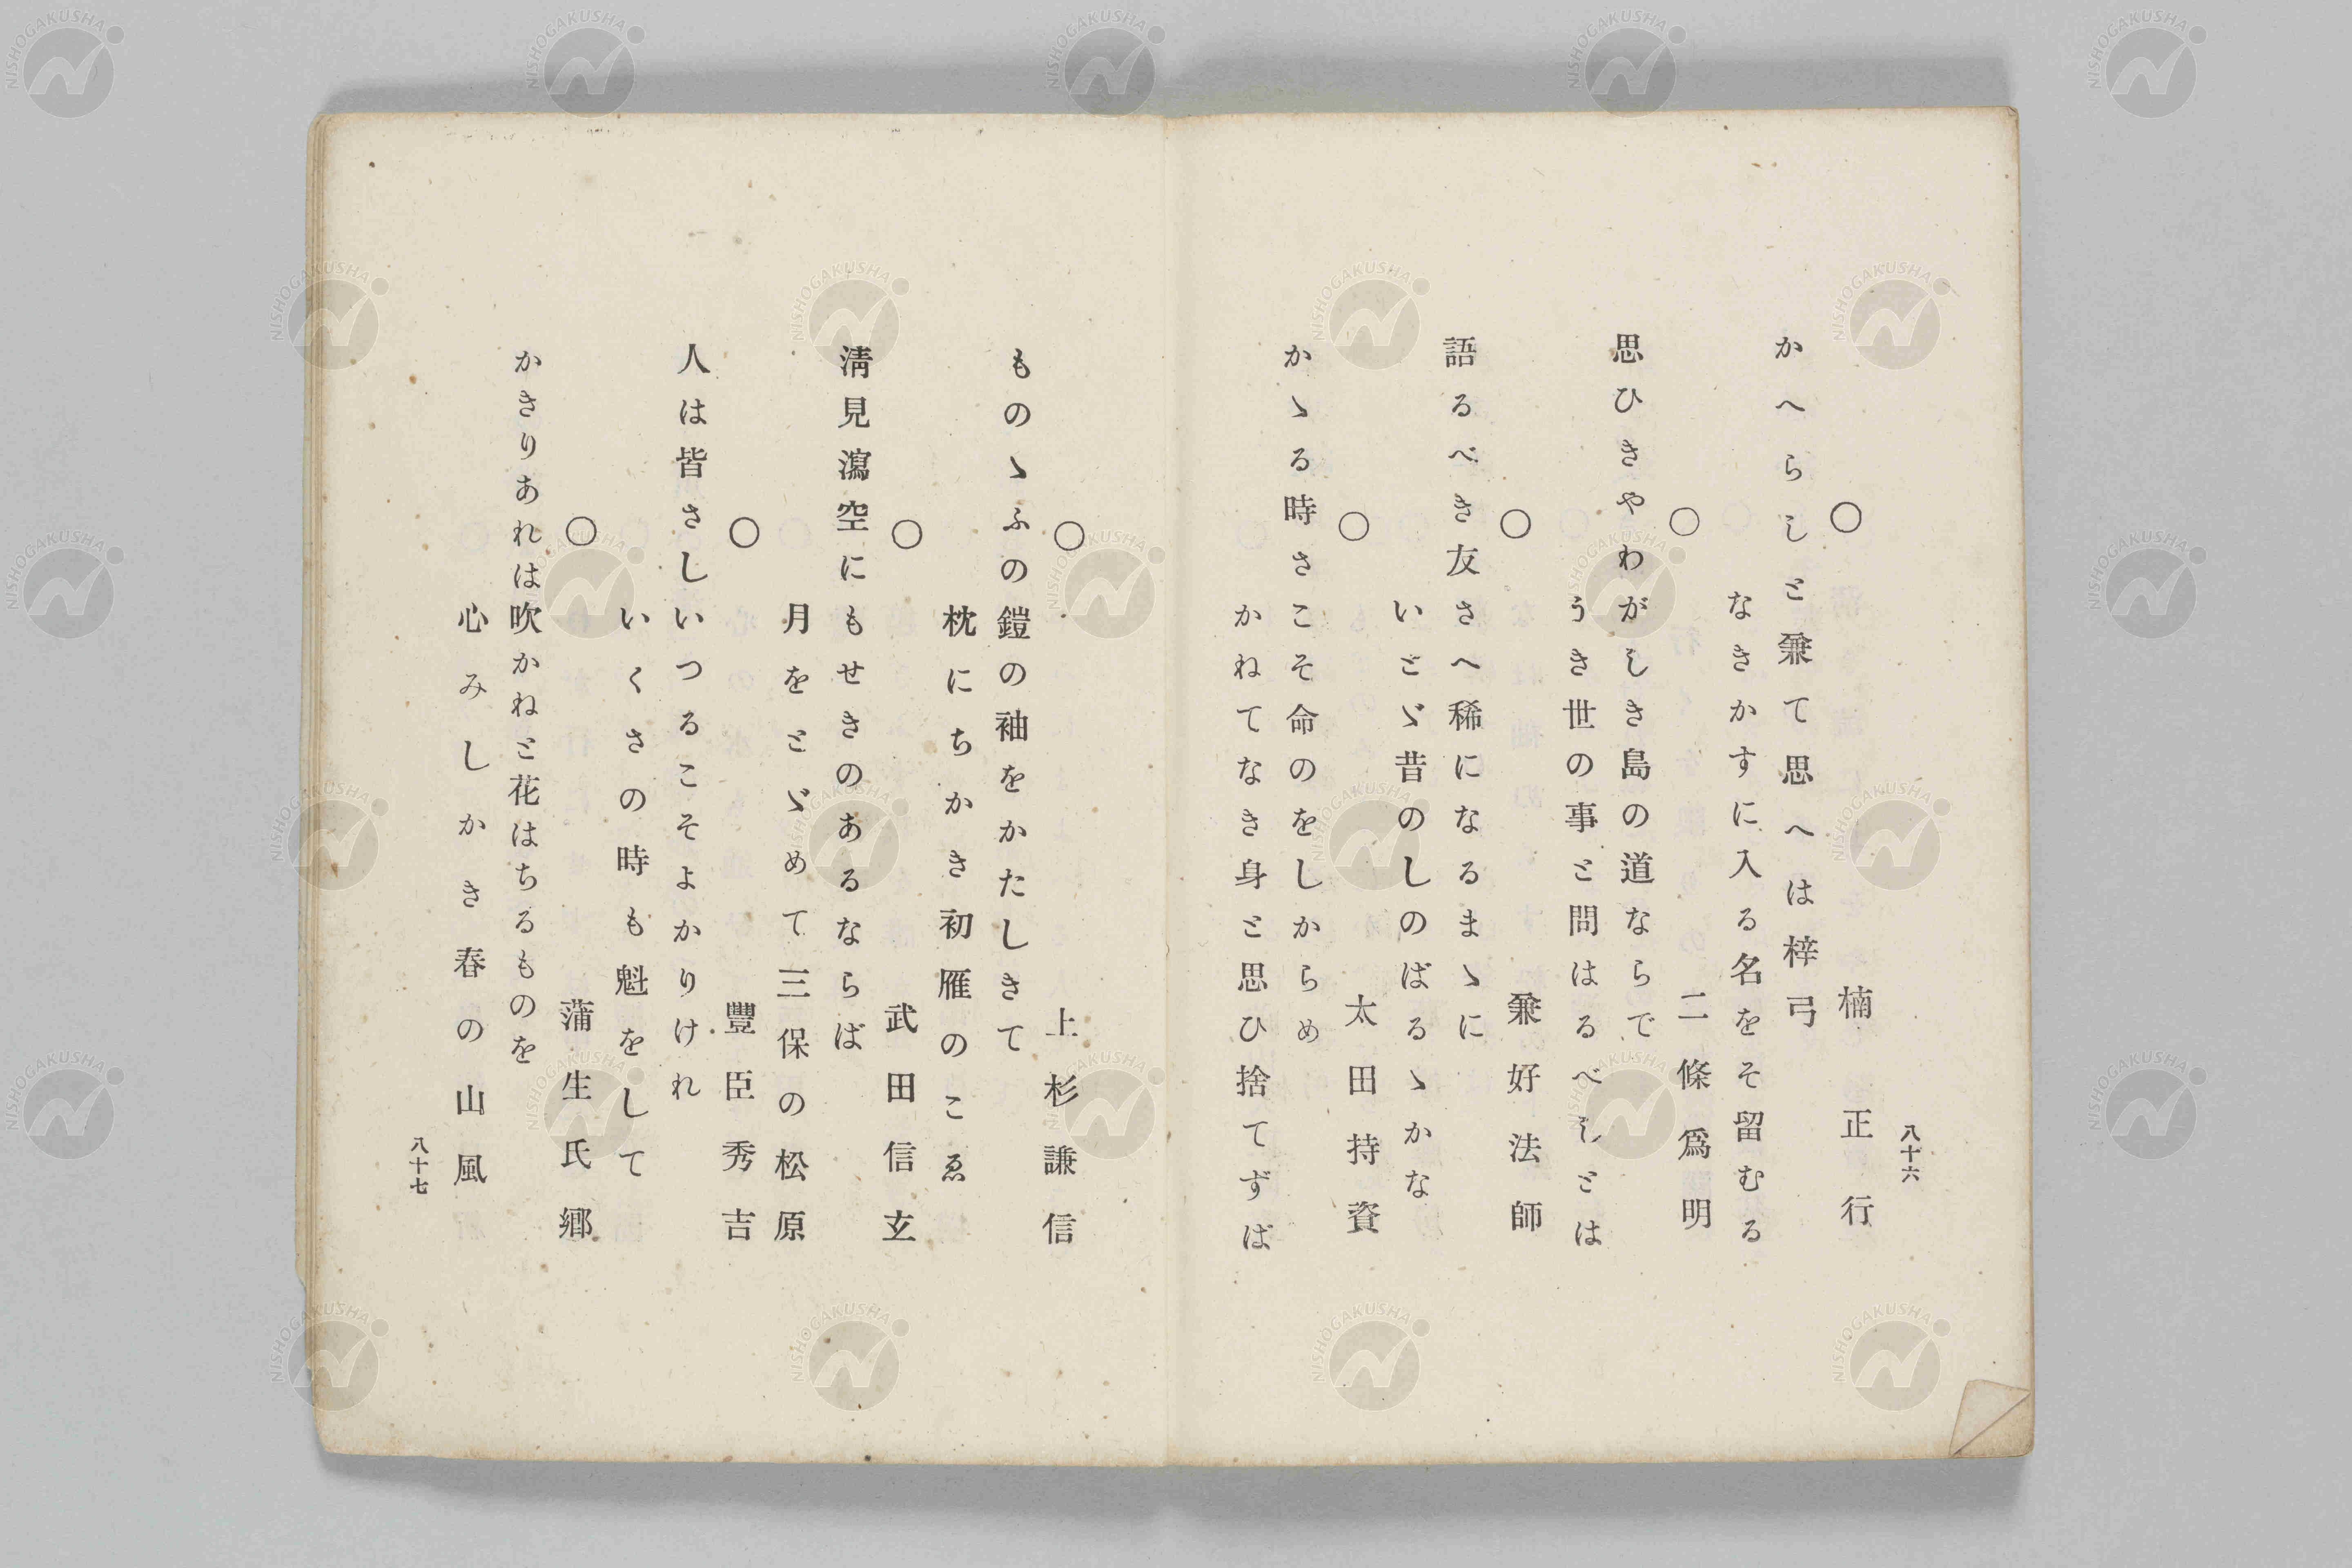 八十六
○ 楠正行
かへらしと兼て思へは梓弓
なきかすに入る名をそ留むる
○ 二條爲明
思ひきやわがしき島の道ならで
うき世の事と問はるべしとは
○ 兼好法師
語るべき友さへ稀になるまゝに
いとゞ昔のしのばるゝかな
○ 太田持資
かゝる時さこそ命のをしからめ
かねてなき身と思ひ捨てずば
○ 上杉謙信
ものゝふの鎧の袖をかたしきて
枕にちかき初雁のこゑ
○ 武田信玄
淸見瀉空にもせきのあるならば
月をとゞめて三保の松原
○ 豐臣秀吉
人は皆さしいつるこそよかりけれ
いくさの時も魁をして
○ 蒲生氏鄕
かきりあれは吹かねと花はちるものを
心みしかき春の山風
八十七
NISHOGAKUSHA